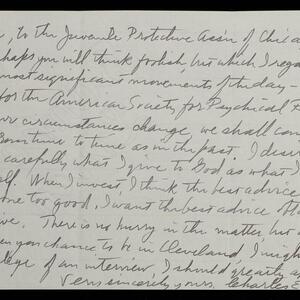 , to the Juvenile Protective Ass'n of Chica
haps you will think foolish, but which I rega
most significant movements of the day —
for the American Society for Psychical R
circumstances change, we shall con
from time to time as in the past. I desire
carefully what I give to God as what I
elf. When I invest, I think the best advice
one too good, I want the best advice
ive. There is no hurry in the matter but
en you chance to be in Cleveland, I migh
lege of an interview, I should greatly a
Very sincerely yours, Charles E